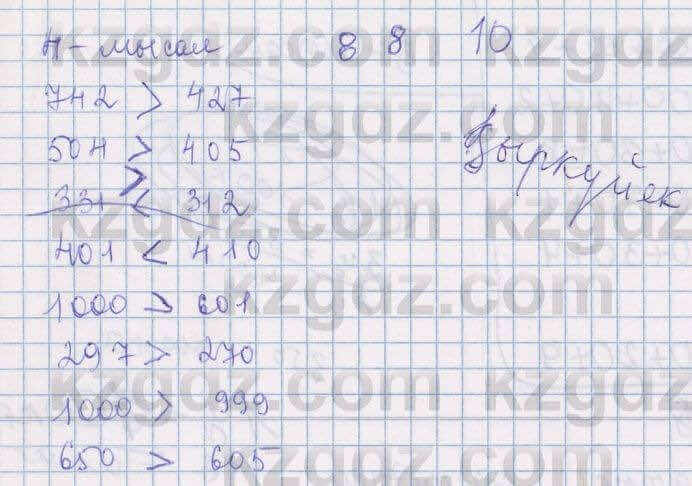 4-мысал 8 8 10
742 > 427
504 > 405
331 < 312
>
401 < 410
1000 > 601
297 > 270
1000 > 999
650 > 605
Қыркүйек
kzgdz.com
kzgdz.com
kzgdz.com
kzgdz.com
kzgdz.com
kzgdz.com